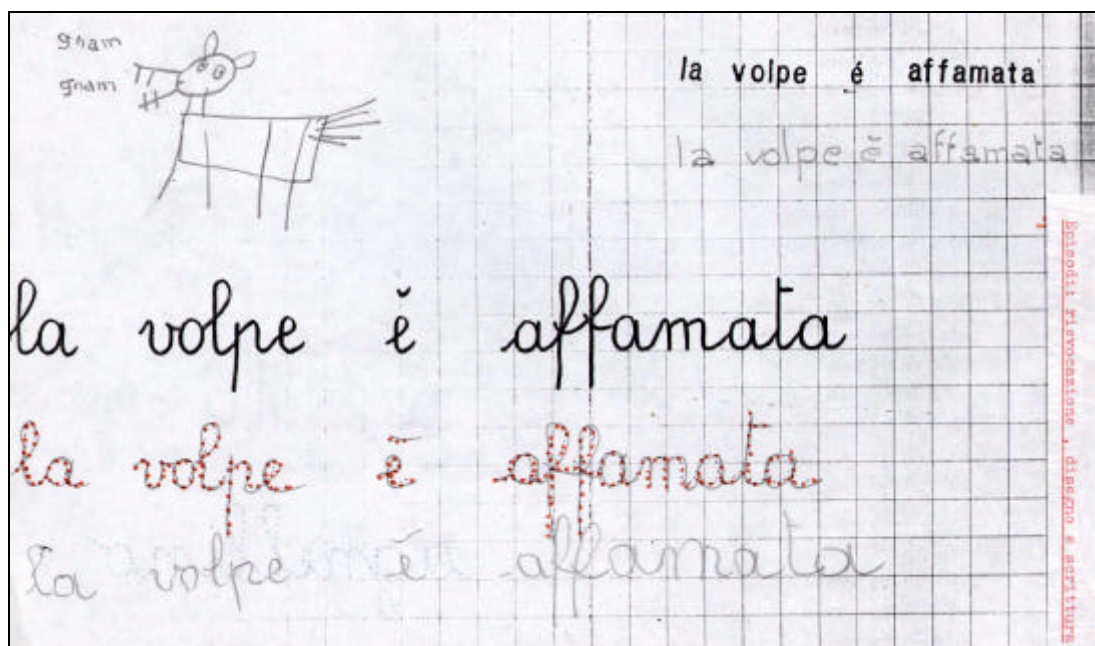 gnam
gnam
la volpe é affamata
la volpe è affamata
la volpe ĕ affamata
la volpe è affamata
la volpe è affamata
Episodi: rievocazione, disegno e scrittura